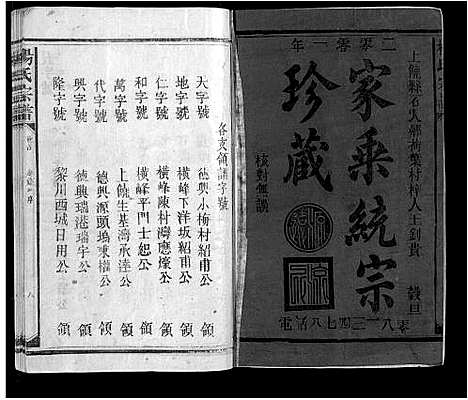 二零零一年
上饒縣石人鄉荷葉村梓人王釗貴 穀旦
家乘統宗
珍藏
核對無誤
電話八七四三一八零
各支領譜字號
天字號 德興小梅村紹甫公 領
地字號 橫峰下洋坂紹甫公 領
仁字號 橫峰陳村灣應燦公 領
和字號 橫峰平門士起公 領
萬字號 上饒生基灣承逵公 領
代字號 德興源頭塢東權公 領
興字號 德興瑞港瑞宇公 領
隆字號 黎川西城日用公 領
楊氏宗譜